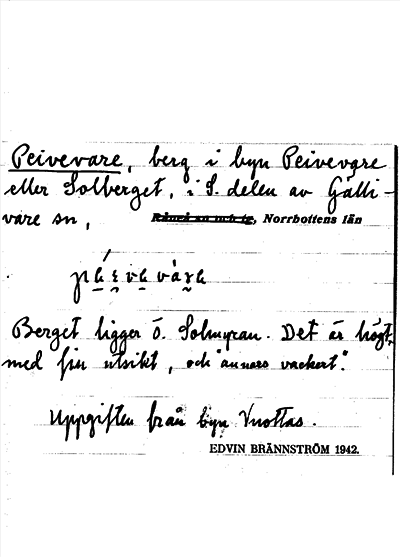 Peivevare, berg i byn Peivevare
eller Solberget, i S. delen av Gälli-
vare sn, Norrbottens län
Berget ligger ö. Solmyran. Det är högt,
med fin utsikt, och "annars vackert".
Uppgiften från byn Vuottas.
EDVIN BRÄNNSTRÖM 1942.